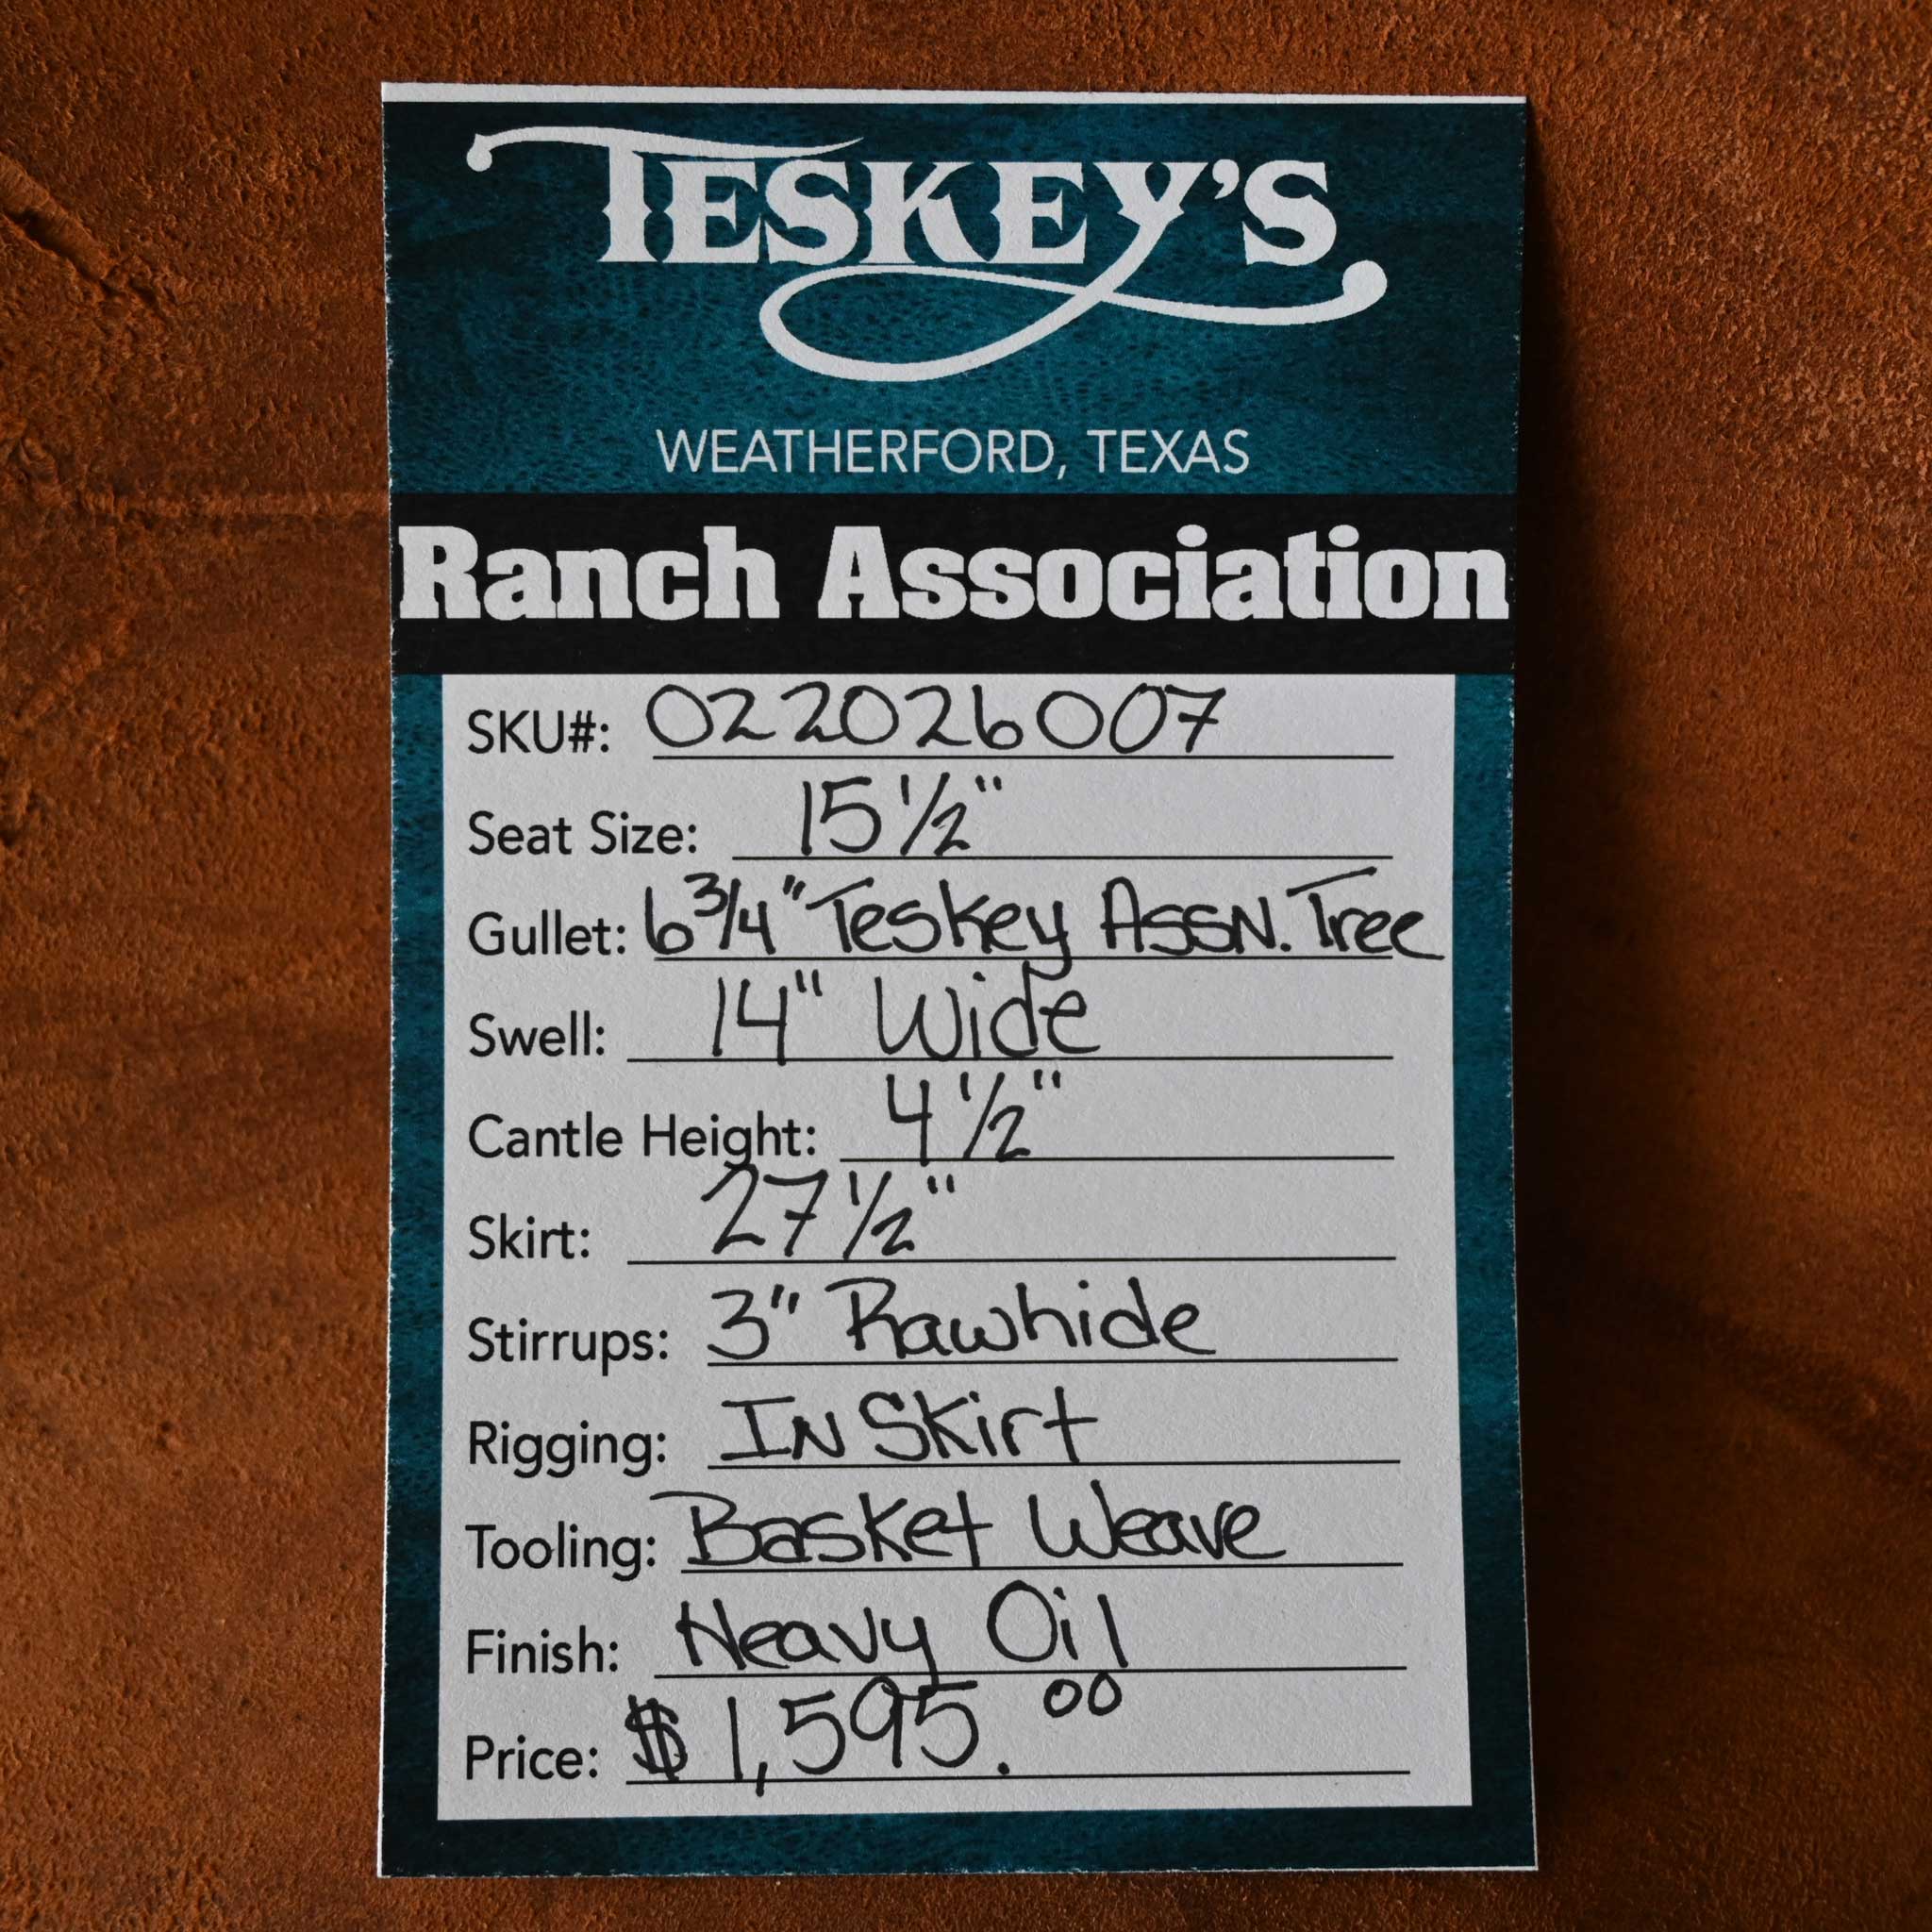 TESKEY'S
WEATHERFORD, TEXAS
Ranch Association
SKU#: 022026007
Seat Size: 15 1/2"
Gullet: 6 3/4" Teskey Assn. Tree
Swell: 14" Wide
Cantle Height: 4 1/2"
Skirt: 27 1/2"
Stirrups: 3" Rawhide
Rigging: In Skirt
Tooling: Basket Weave
Finish: Heavy Oil
Price: $1,595.00